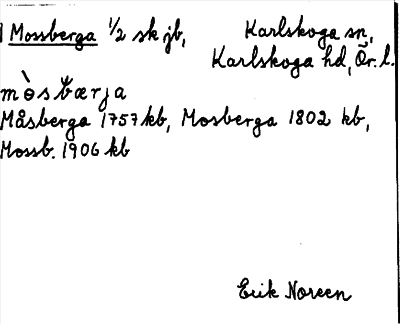 Mossberga 1/2 sk jb, Karlskoga sn,
Karlskoga hd, Ör. l.
mòsbærja
Måsberga 1757 kb, Mosberga 1802 kb,
Mossb. 1906 kb
Erik Noreen